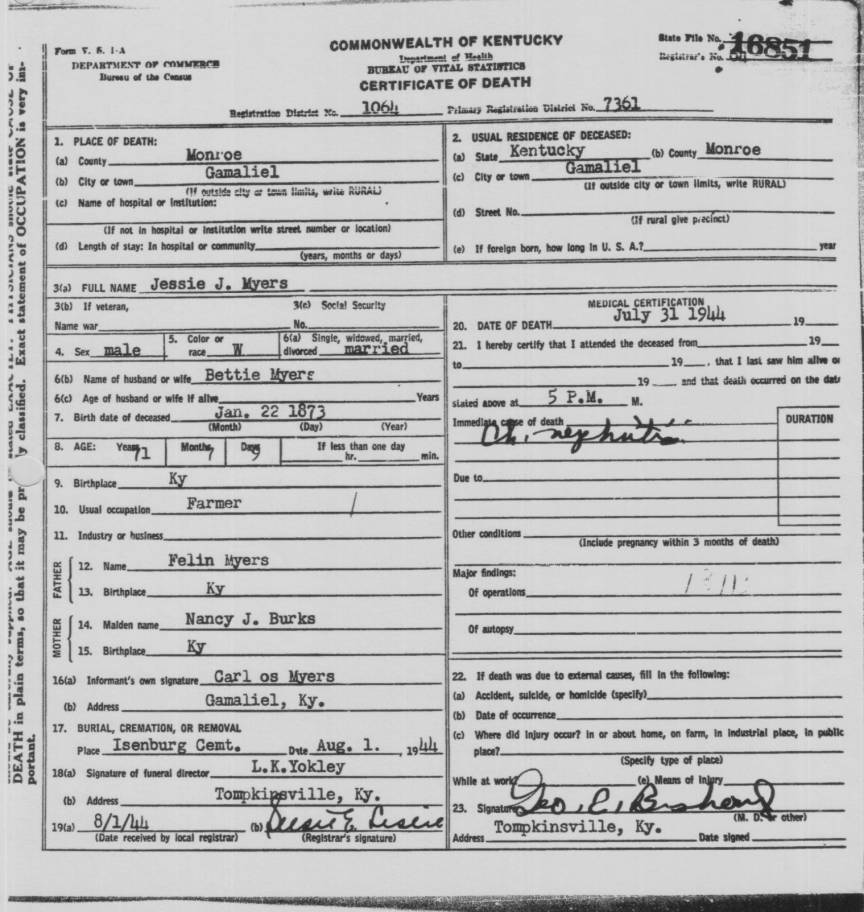 Form V. S. 1-A
DEPARTMENT OF COMMERCE
Bureau of the Census
COMMONWEALTH OF KENTUCKY
Department of Health
BUREAU OF VITAL STATISTICS
CERTIFICATE OF DEATH
State File No. 16851
Registrar's No.
Registration District No. 1064 Primary Registration District No. 7361
1. PLACE OF DEATH:
(a) County Monroe
(b) City or town Gamaliel
(If outside city or town limits, write RURAL)
(c) Name of hospital or institution:
(If not in hospital or institution write street number or location)
(d) Length of stay: In hospital or community
(years, months or days)
2. USUAL RESIDENCE OF DECEASED:
(a) State Kentucky (b) County Monroe
(c) City or town Gamaliel
(If outside city or town limits, write RURAL)
(d) Street No.
(If rural give precinct)
(e) If foreign born, how long in U. S. A.? year
3(a) FULL NAME Jessie J. Myers
3(b) If veteran, 3(c) Social Security
Name war No.
4. Sex male 5. Color or race W 6(a) Single, widowed, married, divorced married
6(b) Name of husband or wife Bettie Myers
6(c) Age of husband or wife if alive Years
7. Birth date of deceased Jan. 22 1873
(Month) (Day) (Year)
8. AGE: Years 71 Months Days 9 If less than one day
hr. min.
9. Birthplace Ky
10. Usual occupation Farmer
11. Industry or business
FATHER
12. Name Felin Myers
13. Birthplace Ky
MOTHER
14. Maiden name Nancy J. Burks
15. Birthplace Ky
16(a) Informant's own signature Carl os Myers
(b) Address Gamaliel, Ky.
17. BURIAL, CREMATION, OR REMOVAL
Place Isenburg Cemt. Date Aug. 1. , 1944
18(a) Signature of funeral director L.K.Yokley
(b) Address Tompkinsville, Ky.
19(a) 8/1/44 (b)
(Date received by local registrar) (Registrar's signature)
MEDICAL CERTIFICATION
20. DATE OF DEATH July 31 1944 19
21. I hereby certify that I attended the deceased from 19
to 19 , that I last saw him alive or
19 and that death occurred on the date
stated above at 5 P.M. M.
Immediate cause of death DURATION
Ch. nephritis
Due to
Other conditions
(Include pregnancy within 3 months of death)
Major findings:
Of operations
Of autopsy
22. If death was due to external causes, fill in the following:
(a) Accident, suicide, or homicide (specify)
(b) Date of occurrence
(c) Where did injury occur? In or about home, on farm, in industrial place, in public
place?
(Specify type of place)
While at work (e) Means of Injury
23. Signature Geo. E.
(M. D. or other)
Tompkinsville, Ky.
Address Date signed
DEATH in plain terms, so that it may be pr y classified. Exact statement of OCCUPATION is very im-
portant.